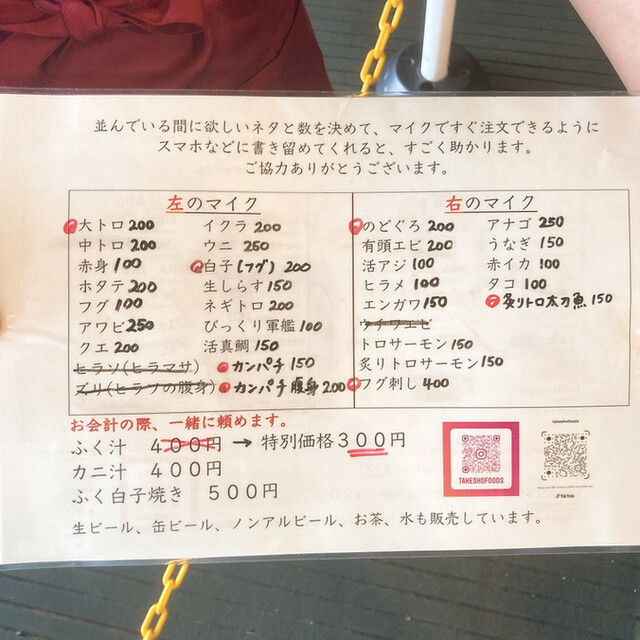 並んでいる間に欲しいネタと数を決めて、マイクですぐ注文できるように
スマホなどに書き留めてくれると、すごく助かります。
ご協力ありがとうございます。
左のマイク
大トロ 200
中トロ 200
赤身 100
ホタテ 200
フグ 100
アワビ 250
クエ 200
ヒラソ(ヒラマサ)
ズリ(ヒラソの腹身)
イクラ 200
ウニ 250
白子(フグ) 200
生しらす 150
ネギトロ 200
びっくり軍艦 100
活真鯛 150
カンパチ 150
カンパチ腹身 200
右のマイク
のどぐろ 200
有頭エビ 200
活アジ 100
ヒラメ 100
エンガワ 150
ウチワエビ
トロサーモン 150
炙りトロサーモン 150
フグ刺し 400
アナゴ 250
うなぎ 150
赤イカ 100
タコ 100
炙りトロ太刀魚 150
お会計の際、一緒に頼めます。
ふく汁 400円 → 特別価格300円
カニ汁 400円
ふく白子焼き 500円
生ビール、缶ビール、ノンアルビール、お茶、水も販売しています。
TAKESHOFOODS
takeshofoods
TikTok